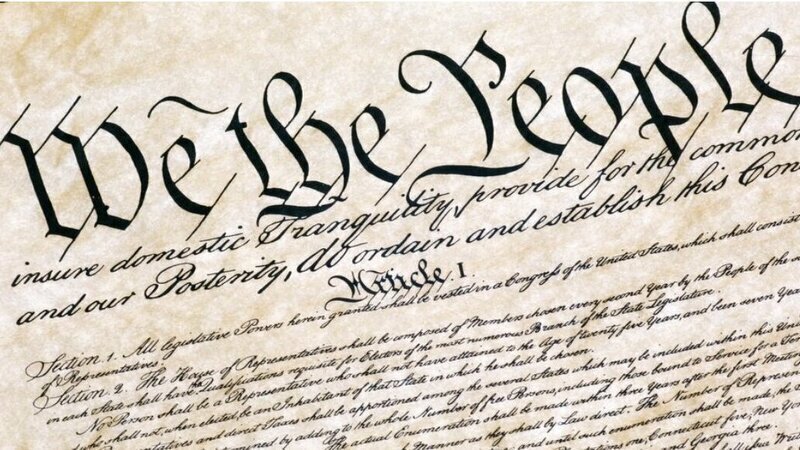 We the People
insure domestic Tranquility, provide for the common
and our Posterity, do ordain and establish this Con
Article. I.
Section. 1. All legislative Powers herein granted shall be vested in a Congress of the United States, which shall consist
of Representatives.
Section. 2. The House of Representatives shall be composed of Members chosen every second Year by the People of the
in each State shall have the Qualifications requisite for Electors of the most numerous Branch of the State Legislature.
No Person shall be a Representative who shall not have attained to the Age of twenty five Years, and been seven Year
who shall not, when elected, be an Inhabitant of that State in which he shall be chosen.
and direct Taxes shall be apportioned among the several States which may be included within this Un
by adding to the whole Number of free Persons, including those bound to Service for a Te
The actual Enumeration shall be made within three Years after the first Meetin
Manner as they shall by Law direct. The Number of Represen
and until such enumeration shall be made, the
one, Connecticut five, New York
and Georgia three.